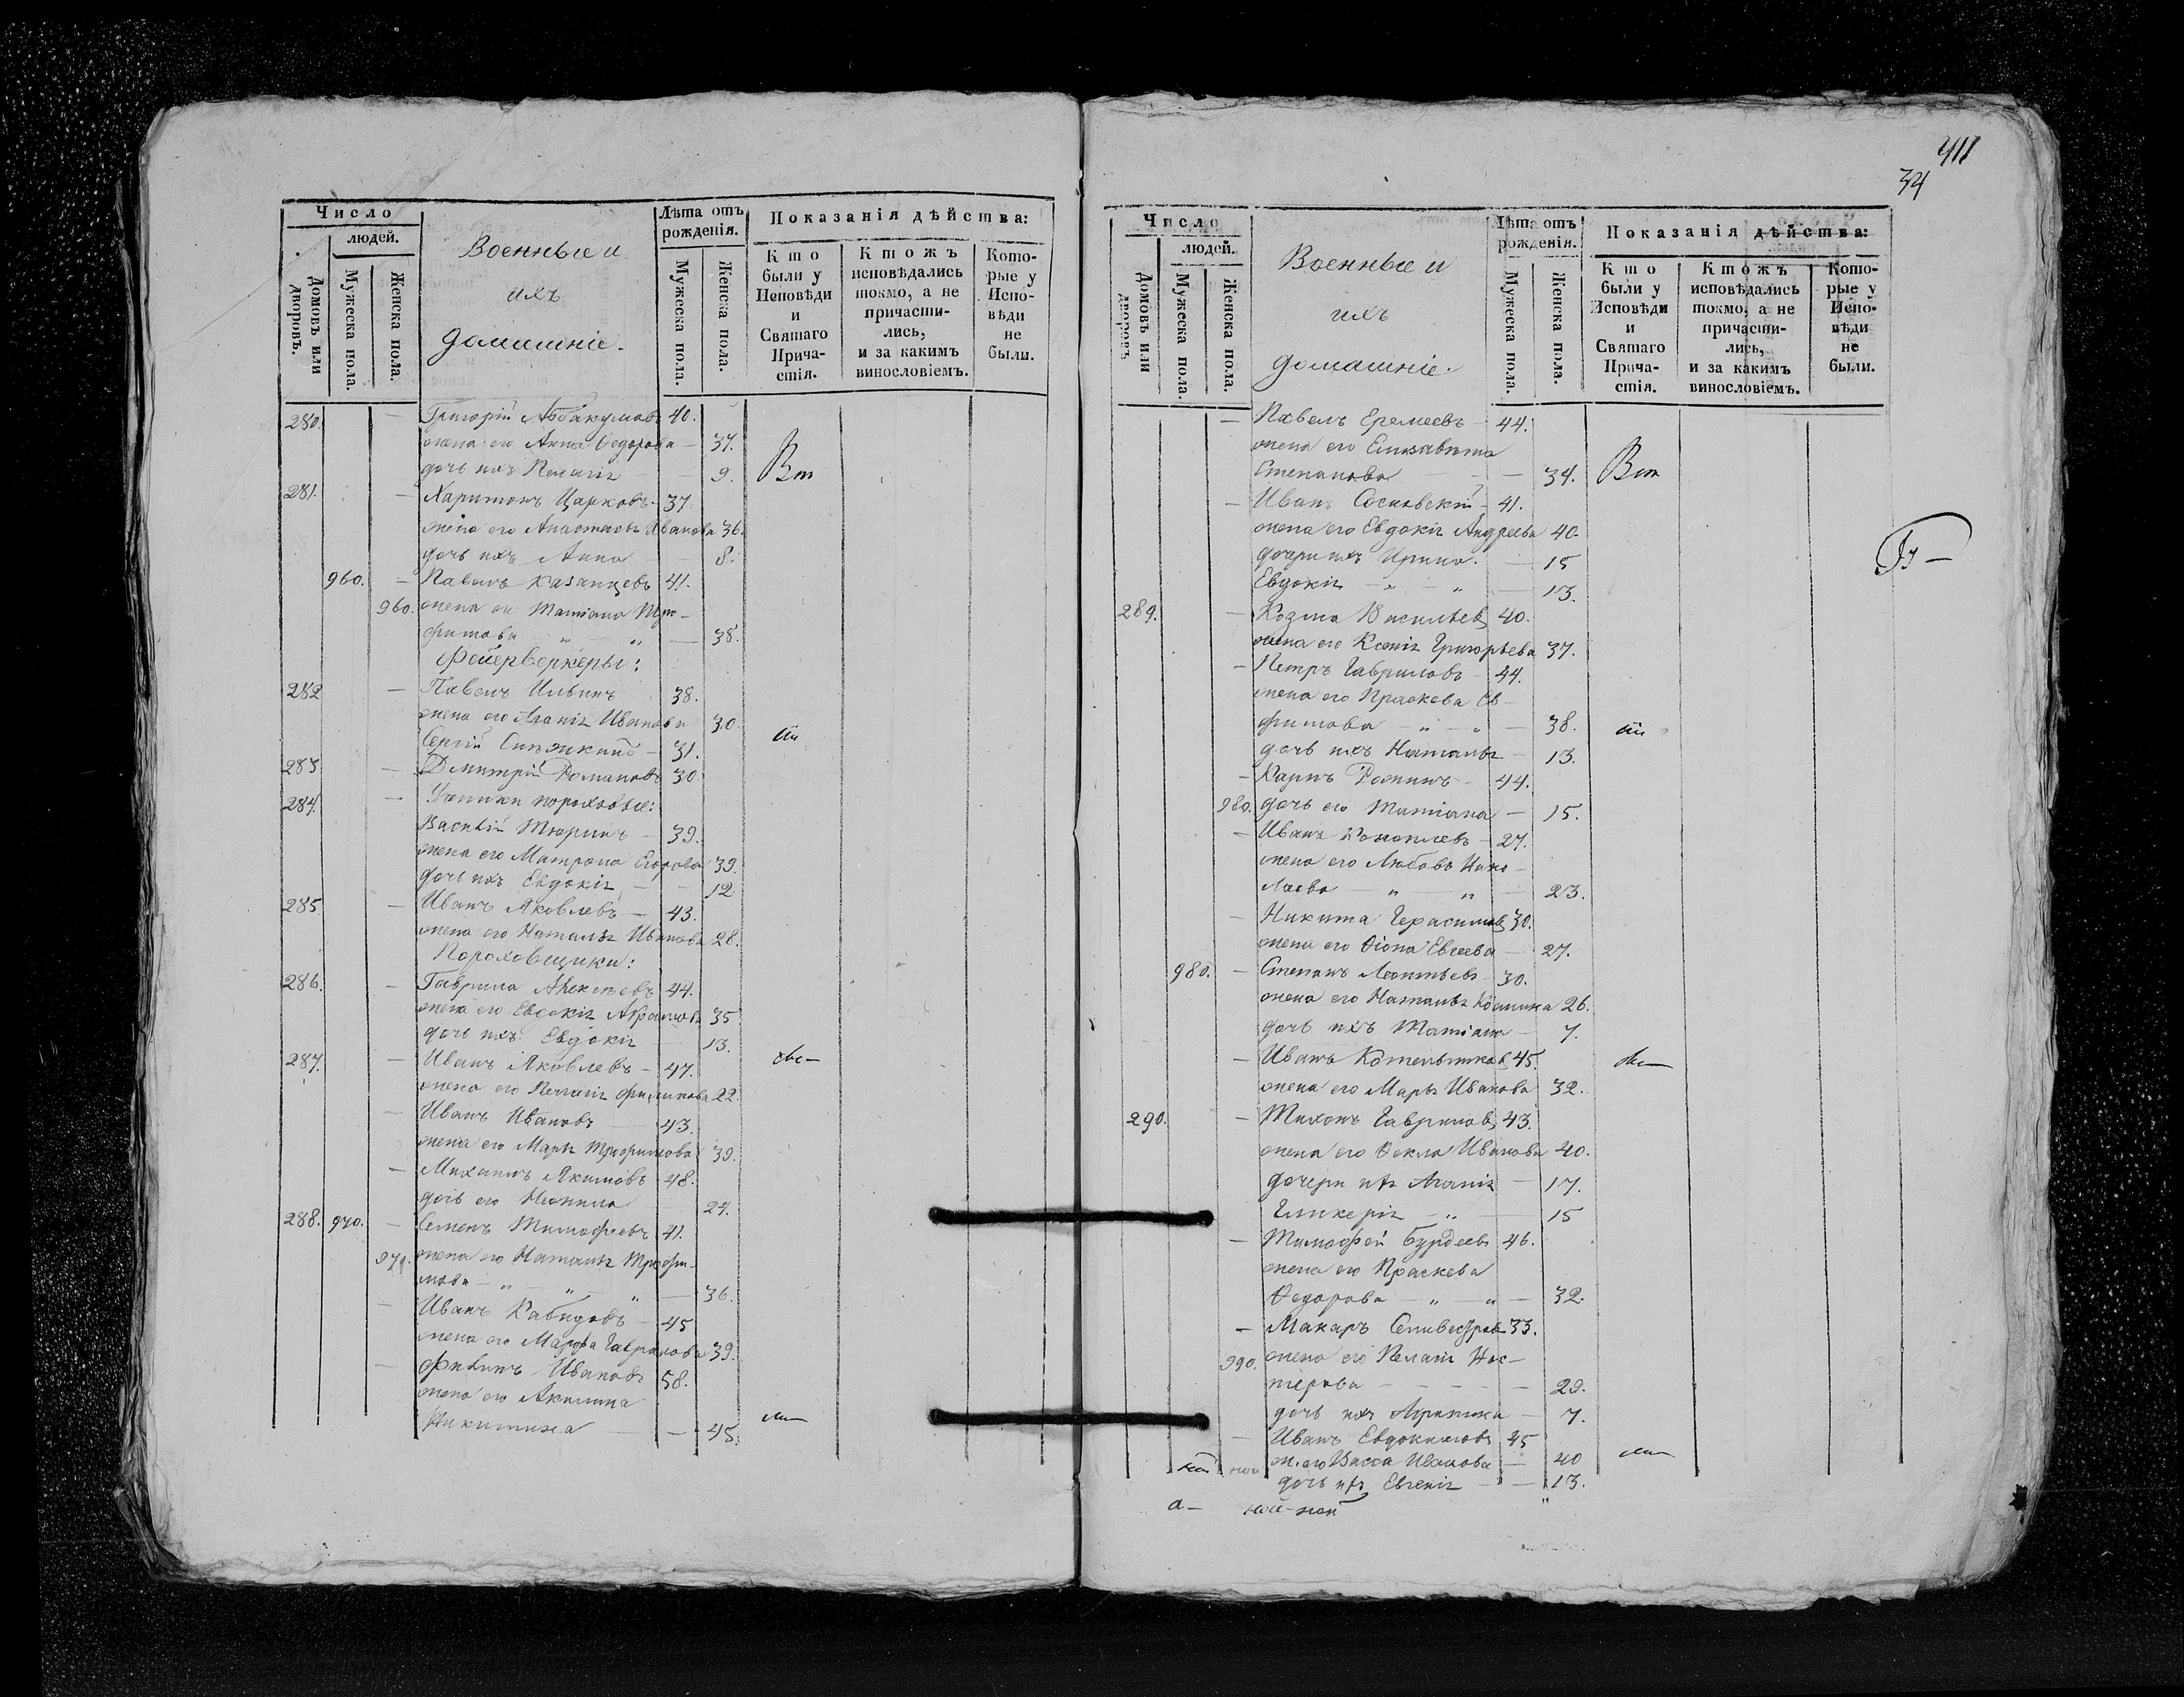 Число
людей.
Домовъ или дворовъ.
Мужеска пола.
Женска пола.
Военные и
ихъ
домашніе.
Лѣта отъ рожденія.
Мужеска пола.
Женска пола.
Показанія дѣйства:
Кто были у Исповѣди и Святаго Прича-стія.
Ктожъ исповѣдались токмо, а не причасти-лись, и за какимъ винословіемъ.
Кото-рые у Испо-вѣди не были.
280. — Григорій Аббакумовъ 40.
жена его Анна Ѳедорова — 37.
дочь ихъ Пелагія 9. Вт
281. — Харитонъ Царковъ 37
жена его Анастасья Иванова 36.
дочь ихъ Анна 8.
960. — Павелъ Казанцевъ 41.
960. жена ег Татіана Тро-
фимова „ „ — 38.
Фейерверкеры:
282 — Павелъ Ильинъ 38.
жена его Агапія Иванова 30.
Сергій 31.
283 — Дмитрій Романовъ 30
284. — Ученики пороховые:
Василій Тюринъ — 39.
жена его Матрона Егорова 39.
дочь ихъ Евдокія — — 12
285 — Иванъ Яковлевъ — 43.
жена его Наталья Иванова 28.
Пороховщики:
286. — Гаврила Алексѣевъ 44.
жена его Евдокія 35
дочь ихъ Евдокія 13.
287. — Иванъ Яковлевъ — 47.
жена его Пелагія Филипова 22
— Иванъ Ивановъ — 43.
жена его Марья Трофимова 39.
— Михаилъ Якимовъ 48.
дочь его Неонила 24.
288. 970. — Семенъ Тимофеевъ 41.
970. жена его Наталья Трофи-
мова — „ „ „ — 36.
— Иванъ 45
жена его Марфа Гаврилова 39.
— Филипъ Ивановъ 58.
жена его Акилина
Никитина — — 45.
411
34
Число
людей.
Домовъ или дворовъ
Мужеска пола.
Женска пола.
Военные и
ихъ
домашніе.
Лѣта отъ рожденія.
Мужеска пола.
Женска пола.
Показанія дѣйства:
Кто были у Исповѣди и Святаго Прича-стія.
Ктожъ исповѣдались токмо, а не причасти-лись, и за какимъ винословіемъ.
Кото-рые у Испо-вѣди не были.
— Павелъ Еремеевъ — 44.
жена его Елисавета
Степанова — 34. Вт
— Иванъ Сосновскій — 41.
жена его Евдокія Андреева 40.
дочери ихъ Ирина. — 15
Евдокія — „ — „ — 13.
289. — Козма Васильевъ 40.
жена его Ксенія Григорьева 37.
— Петръ Гавриловъ — 44.
жена его Праскева Ев-
фимова — „ — „ — 38.
дочь ихъ Наталья — 13.
— Карпъ 44.
980. дочь его Татіана — 15.
— Иванъ Коноплевъ — 27.
жена его Любовь Нико-
лаева — „ — „ — 23.
— Никита Герасимовъ 30.
жена его Ѳіона Евсеева — 27.
980. — Степанъ Леонтьевъ 30.
жена его Наталья 26.
дочь ихъ Татіана — 7.
— Иванъ Котельниковъ 45.
жена его Марья Иванова 32.
290. — Тихонъ Гавриловъ 43.
жена его Ѳекла Иванова 40.
дочери ихъ Агапія — 17.
Гликерія — „ — 15
— Тимофей Бурдеевъ 46.
жена его Праскева
Ѳедорова — „ — „ — 32.
— Макаръ Селивестровъ 33.
990. жена его Пелагія Нес-
терова — — — — 29.
дочь ихъ Агрипина — 7.
— Иванъ Евдокимовъ 45
ж. его Васса Иванова — 40
дочь ихъ Евгенія — — 13.